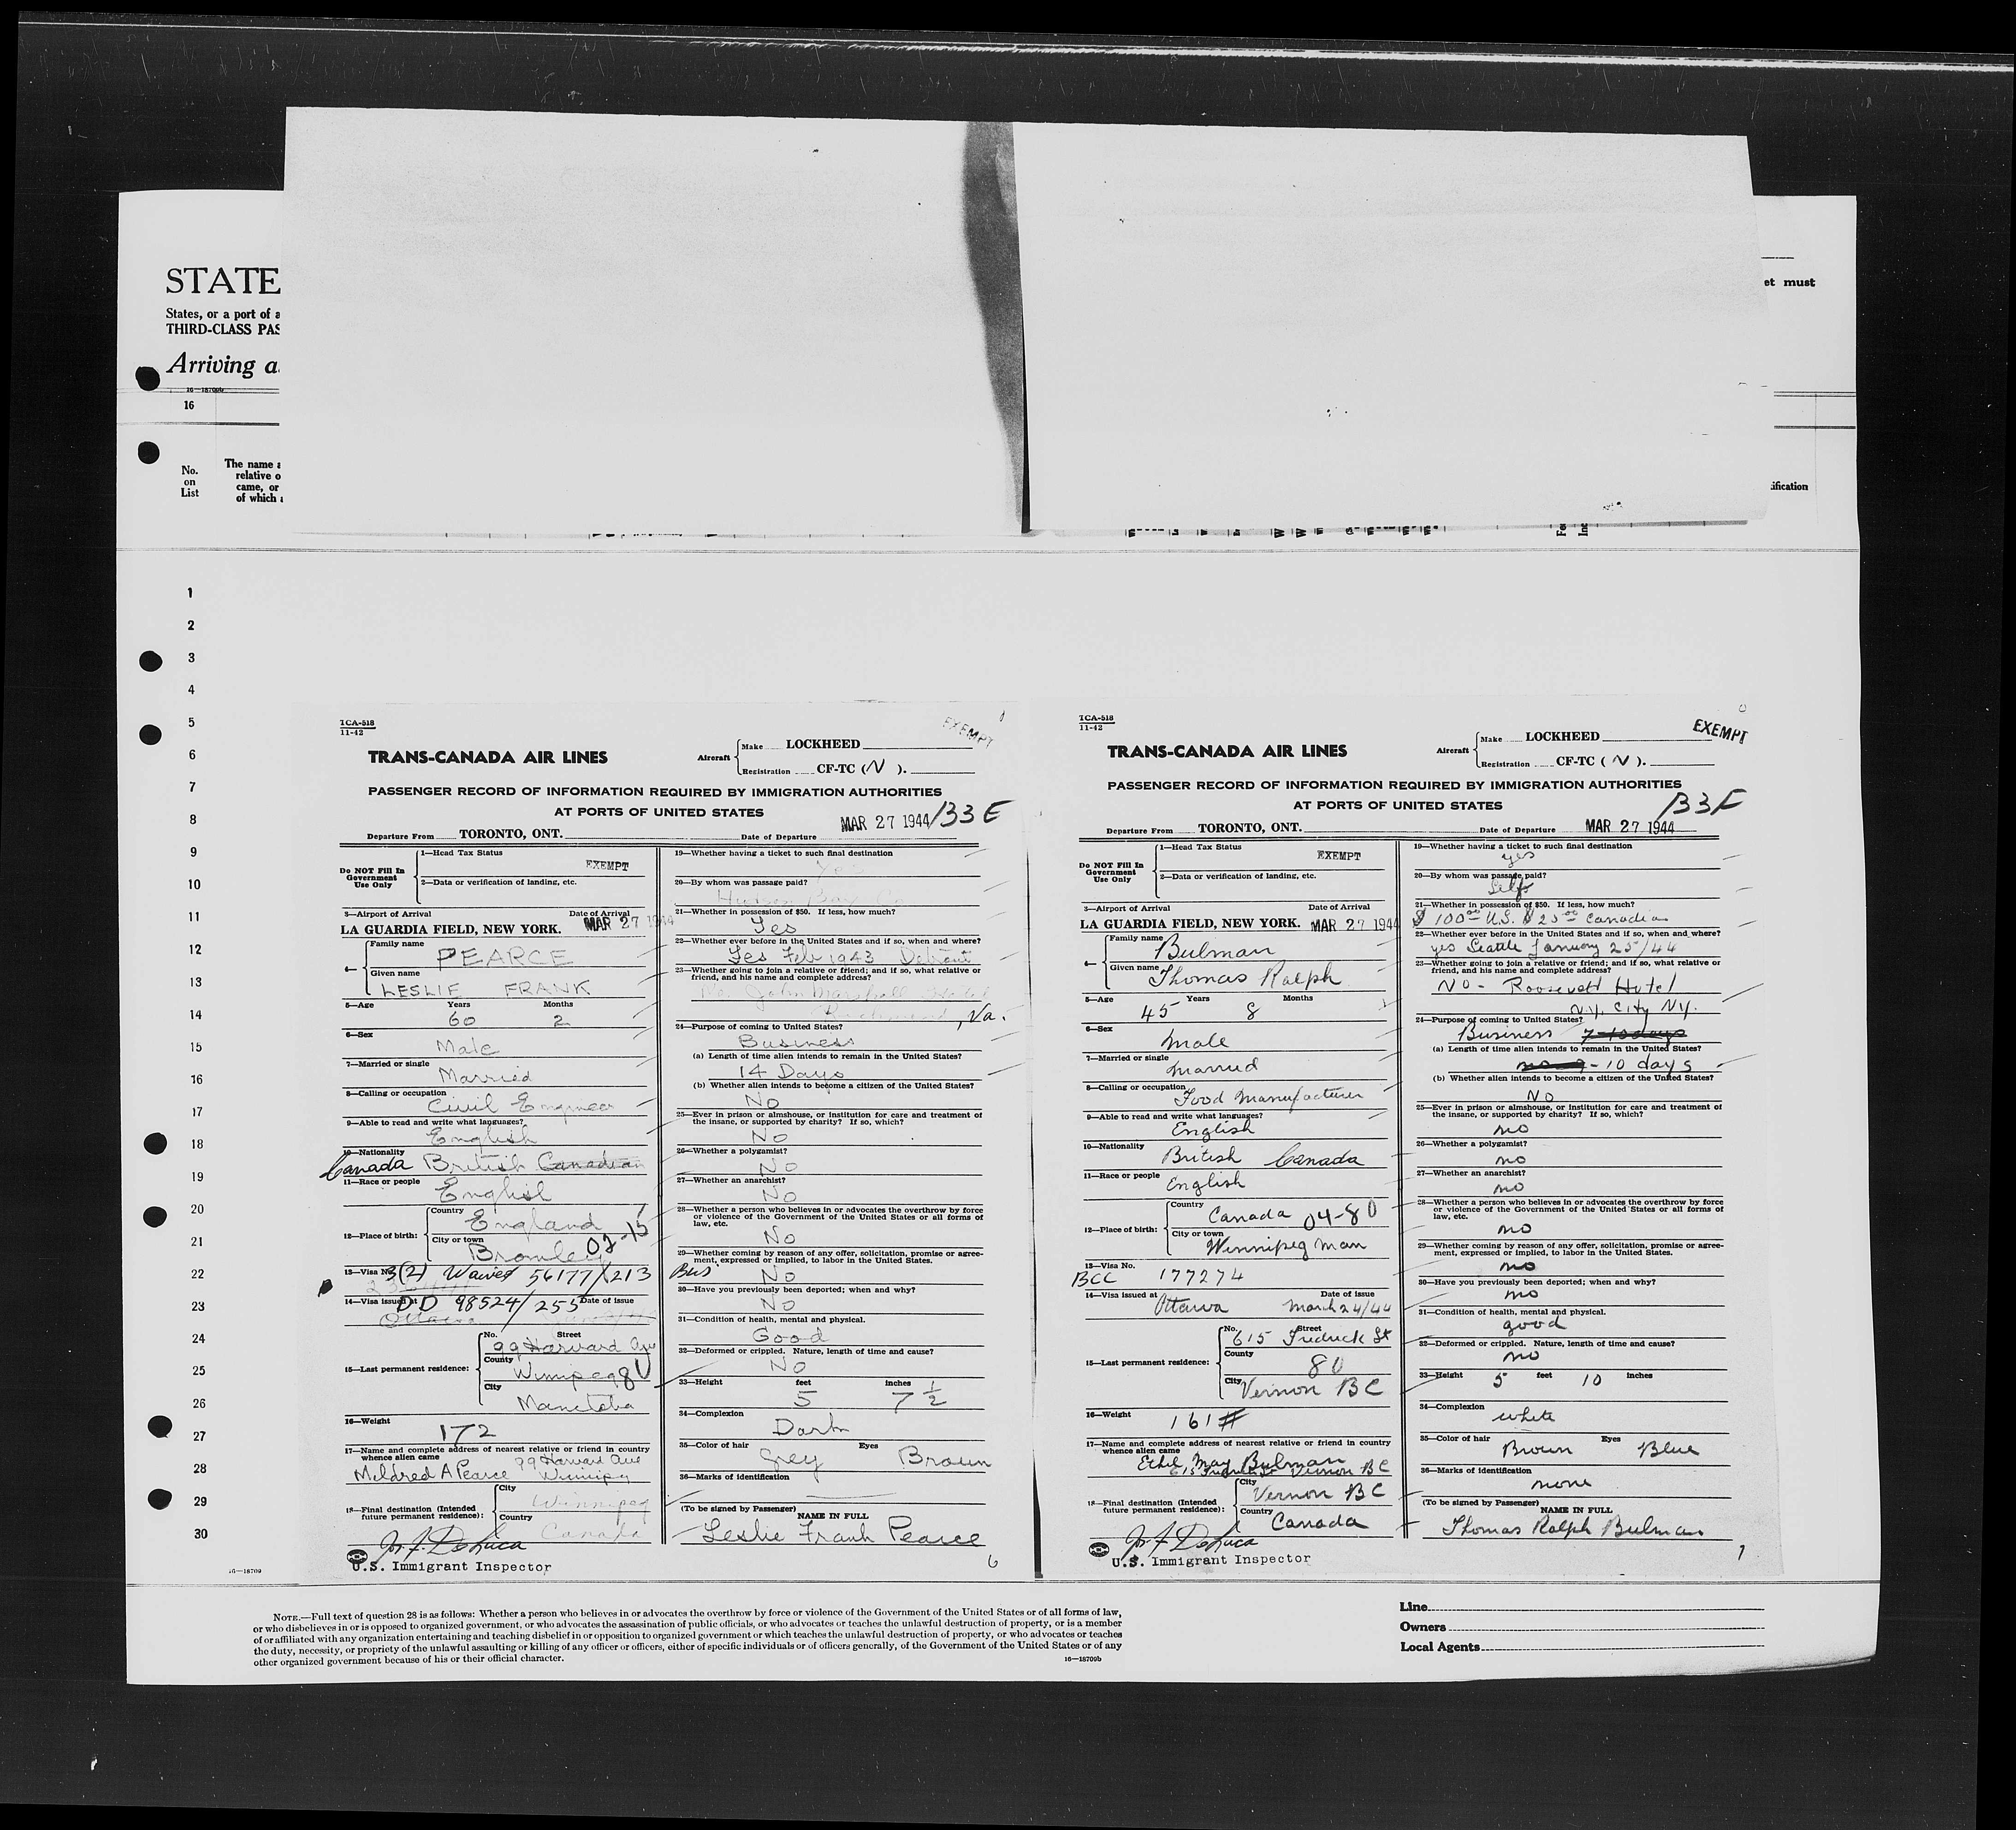 STATE
States, or a port of a
THIRD-CLASS PAS
Arriving a
16—18709
16
No.
on
List
The name a
relative o
came, or
of which a
et must
ification
1
2
3
4
5
6
7
8
9
10
11
12
13
14
15
16
17
18
19
20
21
22
23
24
25
26
27
28
29
30
16—18709
TCA-518
11-42
EXEMPT
TRANS-CANADA AIR LINES
Aircraft
Make LOCKHEED
Registration CF-TC (N ).
PASSENGER RECORD OF INFORMATION REQUIRED BY IMMIGRATION AUTHORITIES
AT PORTS OF UNITED STATES
133 E
Departure From TORONTO, ONT. Date of Departure MAR 27 1944
Do NOT Fill In
Government
Use Only
1—Head Tax Status
EXEMPT
2—Data or verification of landing, etc.
3—Airport of Arrival Date of Arrival
LA GUARDIA FIELD, NEW YORK. MAR 27 1944
4—
Family name
PEARCE
Given name
LESLIE FRANK
5—Age Years Months
60 2
6—Sex
Male
7—Married or single
Married
8—Calling or occupation
Civil Engineer
9—Able to read and write what languages?
English
10—Nationality
Canada British Canadian
11—Race or people
English
12—Place of birth:
Country
England
City or town
Bromley 02-15
13—Visa No.
3(2) Waived 56177/213
14—Visa issued at Date of issue
DD 98524/255
Ottawa
15—Last permanent residence:
No. Street
99 Harvard Ave
County
Winnipeg 80
City
Manitoba
16—Weight
172
17—Name and complete address of nearest relative or friend in country
whence alien came
99 Harvard Ave
Mildred A Pearce Winnipeg
18—Final destination (Intended
future permanent residence):
City
Winnipeg
Country
Canada
U.S. Immigrant Inspector
19—Whether having a ticket to such final destination
Yes
20—By whom was passage paid?
Hudson Bay Co
21—Whether in possession of $50. If less, how much?
Yes
22—Whether ever before in the United States and if so, when and where?
Yes Feb 1943 Detroit
23—Whether going to join a relative or friend; and if so, what relative or
friend, and his name and complete address?
No John Marshall Hotel
Richmond, Va.
24—Purpose of coming to United States?
Business
(a) Length of time alien intends to remain in the United States?
14 Days
(b) Whether alien intends to become a citizen of the United States?
No
25—Ever in prison or almshouse, or institution for care and treatment of
the insane, or supported by charity? If so, which?
No
26—Whether a polygamist?
No
27—Whether an anarchist?
No
28—Whether a person who believes in or advocates the overthrow by force
or violence of the Government of the United States or all forms of
law, etc.
No
29—Whether coming by reason of any offer, solicitation, promise or agree-
ment, expressed or implied, to labor in the United States.
Bus. No
30—Have you previously been deported; when and why?
No
31—Condition of health, mental and physical.
Good
32—Deformed or crippled. Nature, length of time and cause?
No
33—Height feet inches
5 7 1/2
34—Complexion
Dark
35—Color of hair Eyes
Grey Brown
36—Marks of identification
(To be signed by Passenger)
NAME IN FULL
Leslie Frank Pearce
6
TCA-518
11-42
EXEMPT
TRANS-CANADA AIR LINES
Aircraft
Make LOCKHEED
Registration CF-TC ( N ).
PASSENGER RECORD OF INFORMATION REQUIRED BY IMMIGRATION AUTHORITIES
AT PORTS OF UNITED STATES
133F
Departure From TORONTO, ONT. Date of Departure MAR 27 1944
Do NOT Fill In
Government
Use Only
1—Head Tax Status
EXEMPT
2—Data or verification of landing, etc.
3—Airport of Arrival Date of Arrival
LA GUARDIA FIELD, NEW YORK. MAR 27 1944
4—
Family name
Bulman
Given name
Thomas Ralph
5—Age Years Months
45 8
6—Sex
Male
7—Married or single
Married
8—Calling or occupation
Food Manufacturer
9—Able to read and write what languages?
English
10—Nationality
British Canada
11—Race or people
English
12—Place of birth:
Country
Canada 04-80
City or town
Winnipeg Man
13—Visa No.
BCC 177274
14—Visa issued at Date of issue
Ottawa March 24/44
15—Last permanent residence:
No. Street
615 Fredrick St
County
80
City
Vernon BC
16—Weight
161#
17—Name and complete address of nearest relative or friend in country
whence alien came
Ethel May Bulman
615 Fredrick St Vernon BC
18—Final destination (Intended
future permanent residence):
City
Vernon BC
Country
Canada
U.S. Immigrant Inspector
19—Whether having a ticket to such final destination
yes
20—By whom was passage paid?
Self
21—Whether in possession of $50. If less, how much?
$100.00 U.S. $25.00 Canadian
22—Whether ever before in the United States and if so, when and where?
yes Seattle January 25/44
23—Whether going to join a relative or friend; and if so, what relative or
friend, and his name and complete address?
No - Roosevelt Hotel
N.Y. City N.Y.
24—Purpose of coming to United States?
Business 7-10 days
(a) Length of time alien intends to remain in the United States?
- 10 days
(b) Whether alien intends to become a citizen of the United States?
No
25—Ever in prison or almshouse, or institution for care and treatment of
the insane, or supported by charity? If so, which?
no
26—Whether a polygamist?
no
27—Whether an anarchist?
no
28—Whether a person who believes in or advocates the overthrow by force
or violence of the Government of the United States or all forms of
law, etc.
no
29—Whether coming by reason of any offer, solicitation, promise or agree-
ment, expressed or implied, to labor in the United States.
no
30—Have you previously been deported; when and why?
no
31—Condition of health, mental and physical.
good
32—Deformed or crippled. Nature, length of time and cause?
no
33—Height 5 feet 10 inches
34—Complexion
white
35—Color of hair Eyes
Brown Blue
36—Marks of identification
none
(To be signed by Passenger)
NAME IN FULL
Thomas Ralph Bulman
7
NOTE.—Full text of question 28 is as follows: Whether a person who believes in or advocates the overthrow by force or violence of the Government of the United States or of all forms of law,
or who disbelieves in or is opposed to organized government, or who advocates the assassination of public officials, or who advocates or teaches the unlawful destruction of property, or is a member
of or affiliated with any organization entertaining and teaching disbelief in or opposition to organized government or which teaches the unlawful destruction of property, or who advocates or teaches
the duty, necessity, or propriety of the unlawful assaulting or killing of any officer or officers, either of specific individuals or of officers generally, of the Government of the United States or of any
other organized government because of his or their official character.
16—18709b
Line
Owners
Local Agents